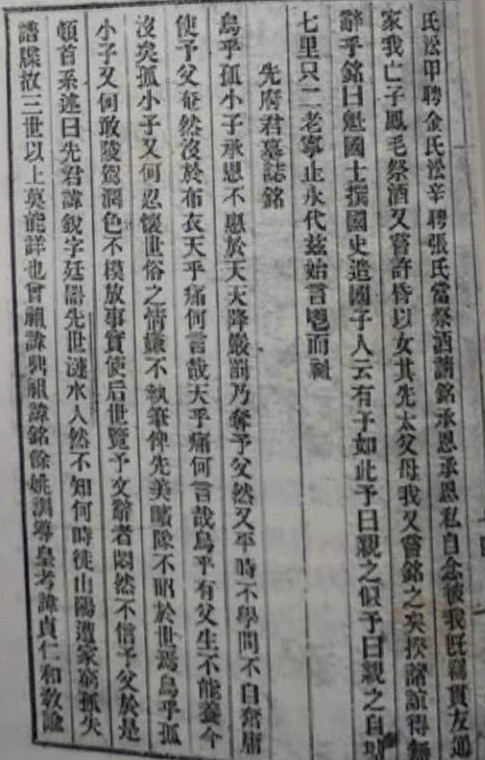 氏淞甲聘金氏淞辛聘張氏當祭酒請銘承恩承恩私自念彼我既竊貫友通
家我亡子鳳毛祭酒又嘗許昏以女其先太父母我又嘗銘之矣揆諸誼得無
辭乎銘曰魁國士撰國史造國子人云有子如此予曰親之似予曰親之自
七里只二老寧止永代茲始言鬯而祉
先府君墓誌銘
烏乎孤小子承恩不惠於天天降嚴罰乃奪予父然又平時不學問不自奮庸
使予父奄然沒於布衣天乎痛何言哉天乎痛何言哉烏乎有父生不能養今
沒矣孤小子又何忍懷世俗之情嫌不執筆俾先美曖隊不昭於世焉烏乎孤
小子又何敢陵駕潤色不模放事實使后世覽予文辭者悶然不信予父於是
頓首系述曰先君諱銳字廷器先世漣水人然不知何時徙山陽遭家窮孤失
譜牒故三世以上莫能詳也曾祖諱鼎祖諱銘餘姚訓導皇考諱貞仁和教諭